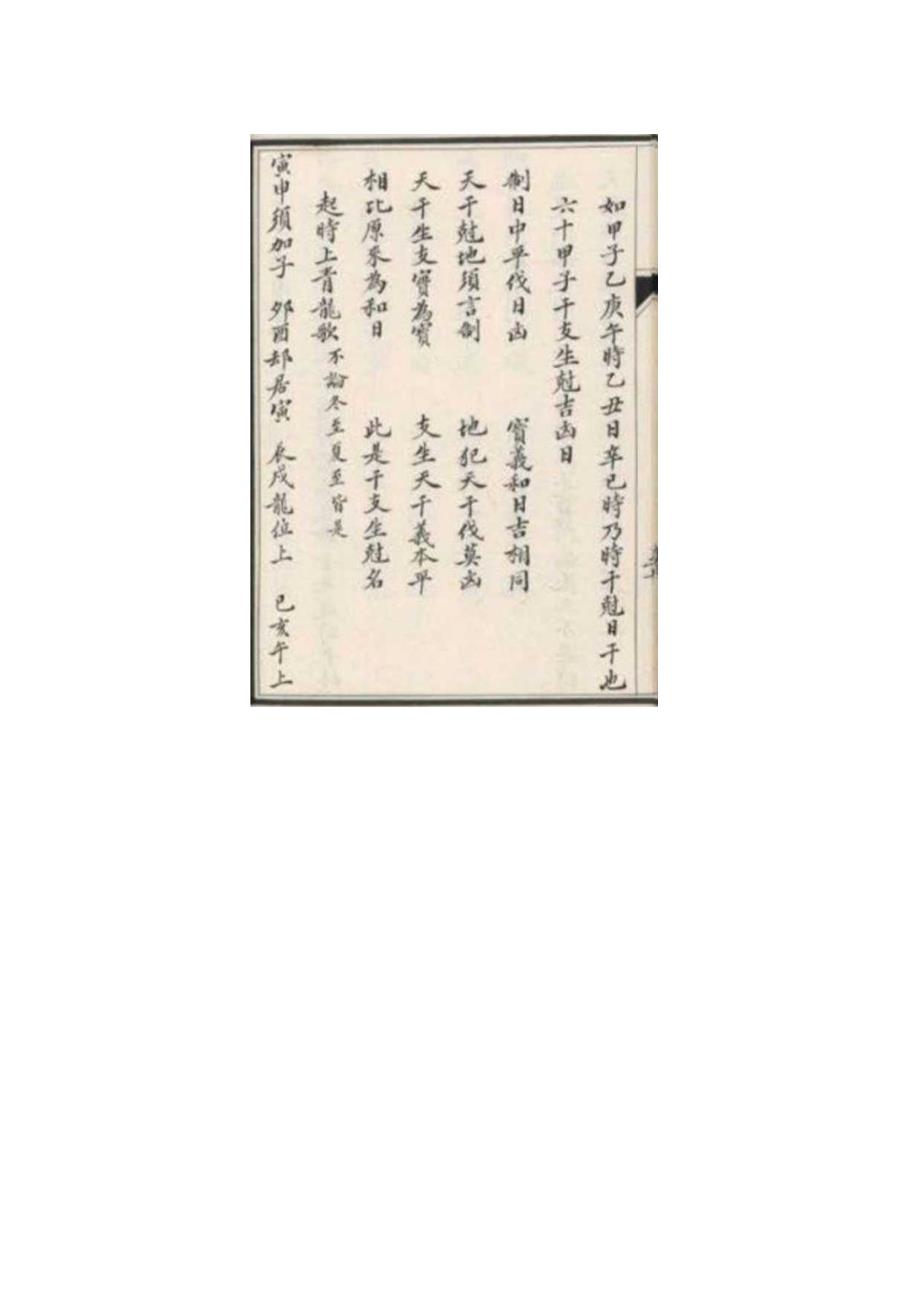 如甲子乙庚午時乙丑日辛巳時乃時干尅日干也
六十甲子干支生尅吉凶日
制日中平伐日凶 寳義和日吉相同
天干尅地須言制 地犯天干伐莫凶
天干生支實為寳 支生天干義本平
相比原來為和日 此是干支生尅名
起時上青龍歌 不論冬至夏至皆是
寅申須加子 夘酉却居寅 辰戌龍位上 巳亥午上